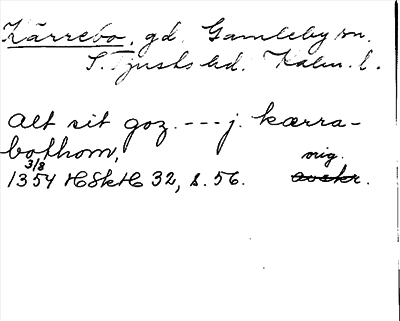 Kärrebo, gd. Gamleby sn.
S. Tjusts hd. Kalm. l.
Alt sit goz. --- j. kærra-
bothom,
3/8 orig.
1354 HSkH 32, s. 56. avskr.